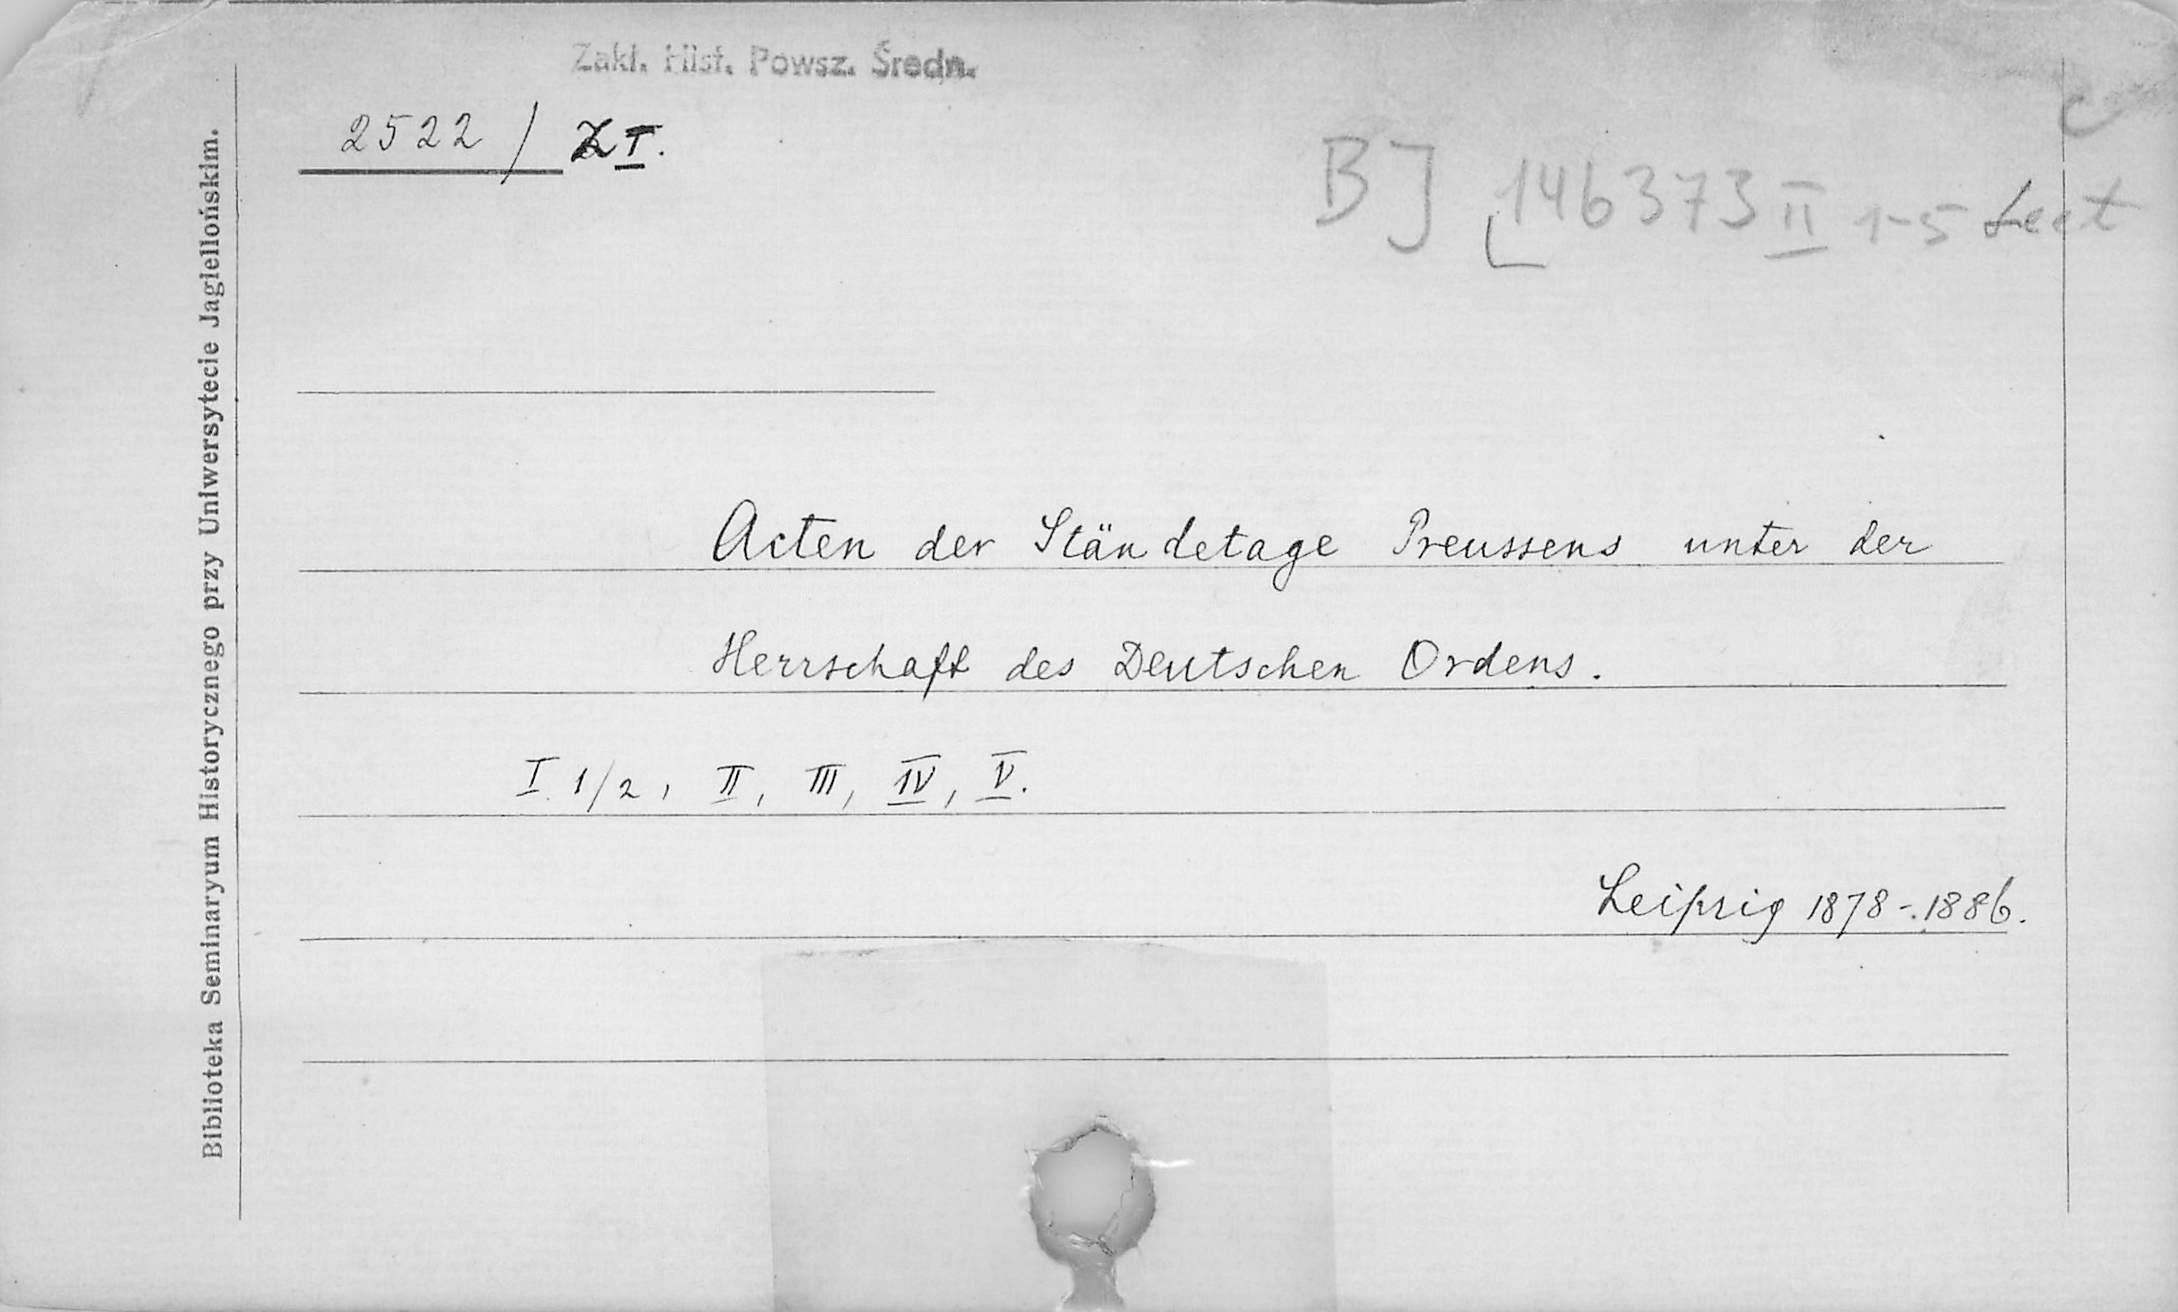 Zakł. Hist. Powsz. Średn.
2522 / Z I.
BJ 146373 II 1-5 Lect
Biblioteka Seminaryum Historycznego przy Uniwersytecie Jagiellońskim.
Acten der Ständetage Preussens unter der
Herrschaft des Deutschen Ordens.
I. 1/2, II, III, IV, V.
Leipzig 1878-1886.